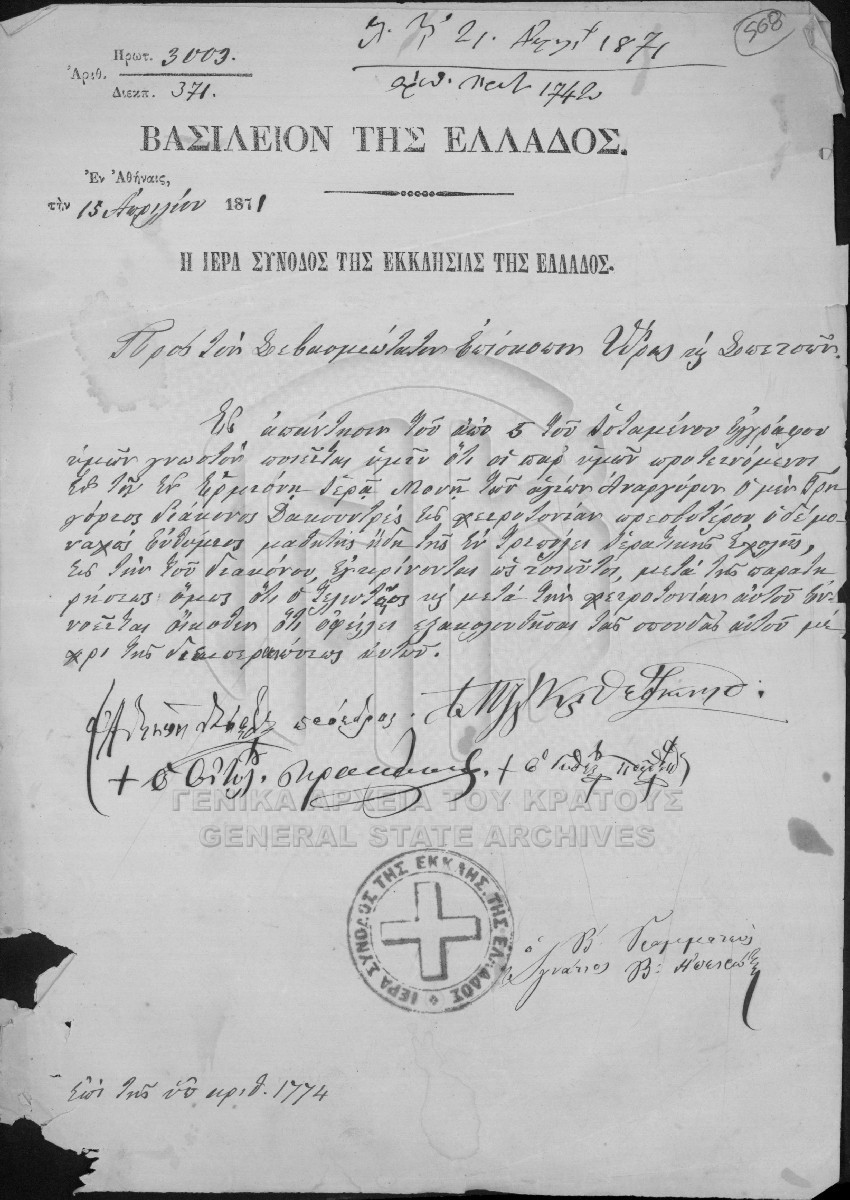 568
21. 1871
ἀριθ. πρωτ. 1742
Πρωτ. 3003.
Ἀριθ.
Διεκπ. 371.
ΒΑΣΙΛΕΙΟΝ ΤΗΣ ΕΛΛΑΔΟΣ.
Ἐν Ἀθήναις,
τὴν 15 Ἀπριλίου 1871
Η ΙΕΡΑ ΣΥΝΟΔΟΣ ΤΗΣ ΕΚΚΛΗΣΙΑΣ ΤΗΣ ΕΛΛΑΔΟΣ.
Πρὸς τὸν Σεβασμιώτατον Ἐπίσκοπον Ὕδρας κ Σπετσῶν.
Εἰς ἀπάντησιν τοῦ ἀπὸ 5 τοῦ ἱσταμένου ἐγγράφου
ὑμῶν γνωστὸν ποιεῖται ὑμῖν ὅτι οἱ παρ' ὑμῶν προτεινόμενοι
ἐκ τῆς ἐν Ἑρμιόνῃ Ἱερᾶς Μονῆς τῶν ἁγίων Ἀναργύρων ὁ μὲν Γρη-
γόριος διάκονος εἰς χειροτονίαν πρεσβυτέρου, ὁ δὲ μο-
ναχὸς Εὐθύμιος μαθητὴς ἤδη τῆς ἐν Τριπόλει Ἱερατικῆς Σχολῆς,
εἰς τὴν τοῦ διακόνου, ἐγκρίνονται ὡς τοιοῦτοι, μετὰ τῆς παρατη-
ρήσεως ὅμως ὅτι ὁ τελευταῖος κ μετὰ τὴν χειροτονίαν αὐτοῦ ἐν-
νοεῖται οἴκοθεν ὅτι ὀφείλει ἐξακολουθῆσαι τὰς σπουδὰς αὐτοῦ μέ-
χρι τῆς διαπεραιώσεως αὐτῶν.
πρόεδρος.
ΓΕΝΙΚΑ ΑΡΧΕΙΑ ΤΟΥ ΚΡΑΤΟΥΣ
GENERAL STATE ARCHIVES
ΙΕΡΑ ΣΥΝΟΔΟΣ ΤΗΣ ΕΚΚΛΗΣ. ΤΗΣ ΕΛΛΑΔΟΣ
ὁ Β' Γραμματεὺς
Ἰγνάτιος Β:
Ἐπὶ τῆς ὑπ' ἀριθ. 1774